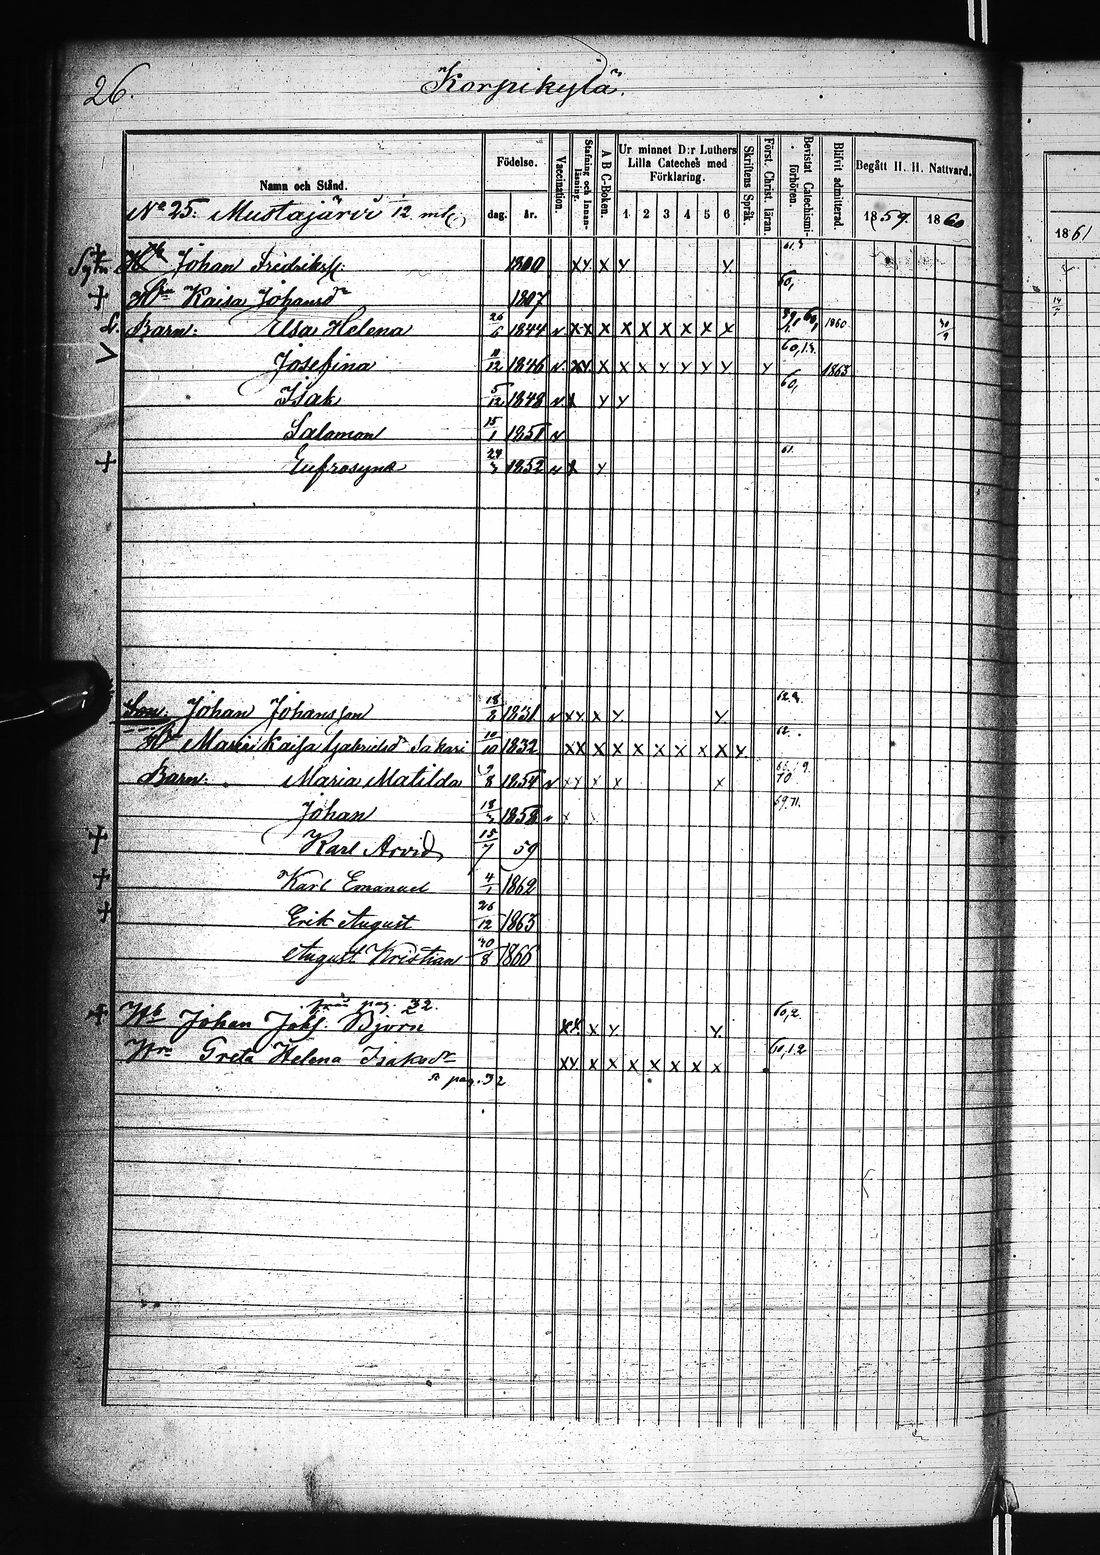 26. Korpikylä.
Namn och Stånd. Födelse. dag. år. Vaccination. Stafning och Innanläsning. A B C-Boken. Ur minnet D:r Luthers Lilla Cateches med Förklaring. 1 2 3 4 5 6 Skriftens Språk. Förstånd Christ. läran. Bevistat Catechismiförhören. Blifvit admitterad. Begått H. H. Nattvard. 1859. 1860 1861
No 25. Mustajärvi 1/12 mtl
+ Sytn. Hb Johan Fredrikss. 1800 x y x y y 61.3
+ Hn Kaisa Johansdr 1807 60,
Barn: Elsa Helena 26/6 1844 v x x x x x x x x x 60, 1860 30/9
Josefina 11/12 1846 v. x y x x x y y y y y 60,1.3. 1863
Isak 5/12 1848 v y y 60,
Salomon 15/1 1851 v
+ Eufrosyne 29/3 1852 v y 61.
Son. Johan Johansson 18/2 1831 v x y x y y
Hn Maria Kaisa Gabrielsdr Sakari 10/10 1832 x x x x x x x x x y
Barn: Maria Matilda 9/8 1854 v x y x x x 70
Johan 18/3 1858 v x 69.71.
+ Karl Arvid 15/7 59
+ Karl Emanuel 4/1 1862
+ Erik August 26/12 1863
August Kristian 30/8 1866
från pag. 32.
+ Hb Johan Johs. Björn x x x y y 60,2.
Hn Greta Helena Isaksdr x y x x x x x x 60.1.2
fr pag. 32